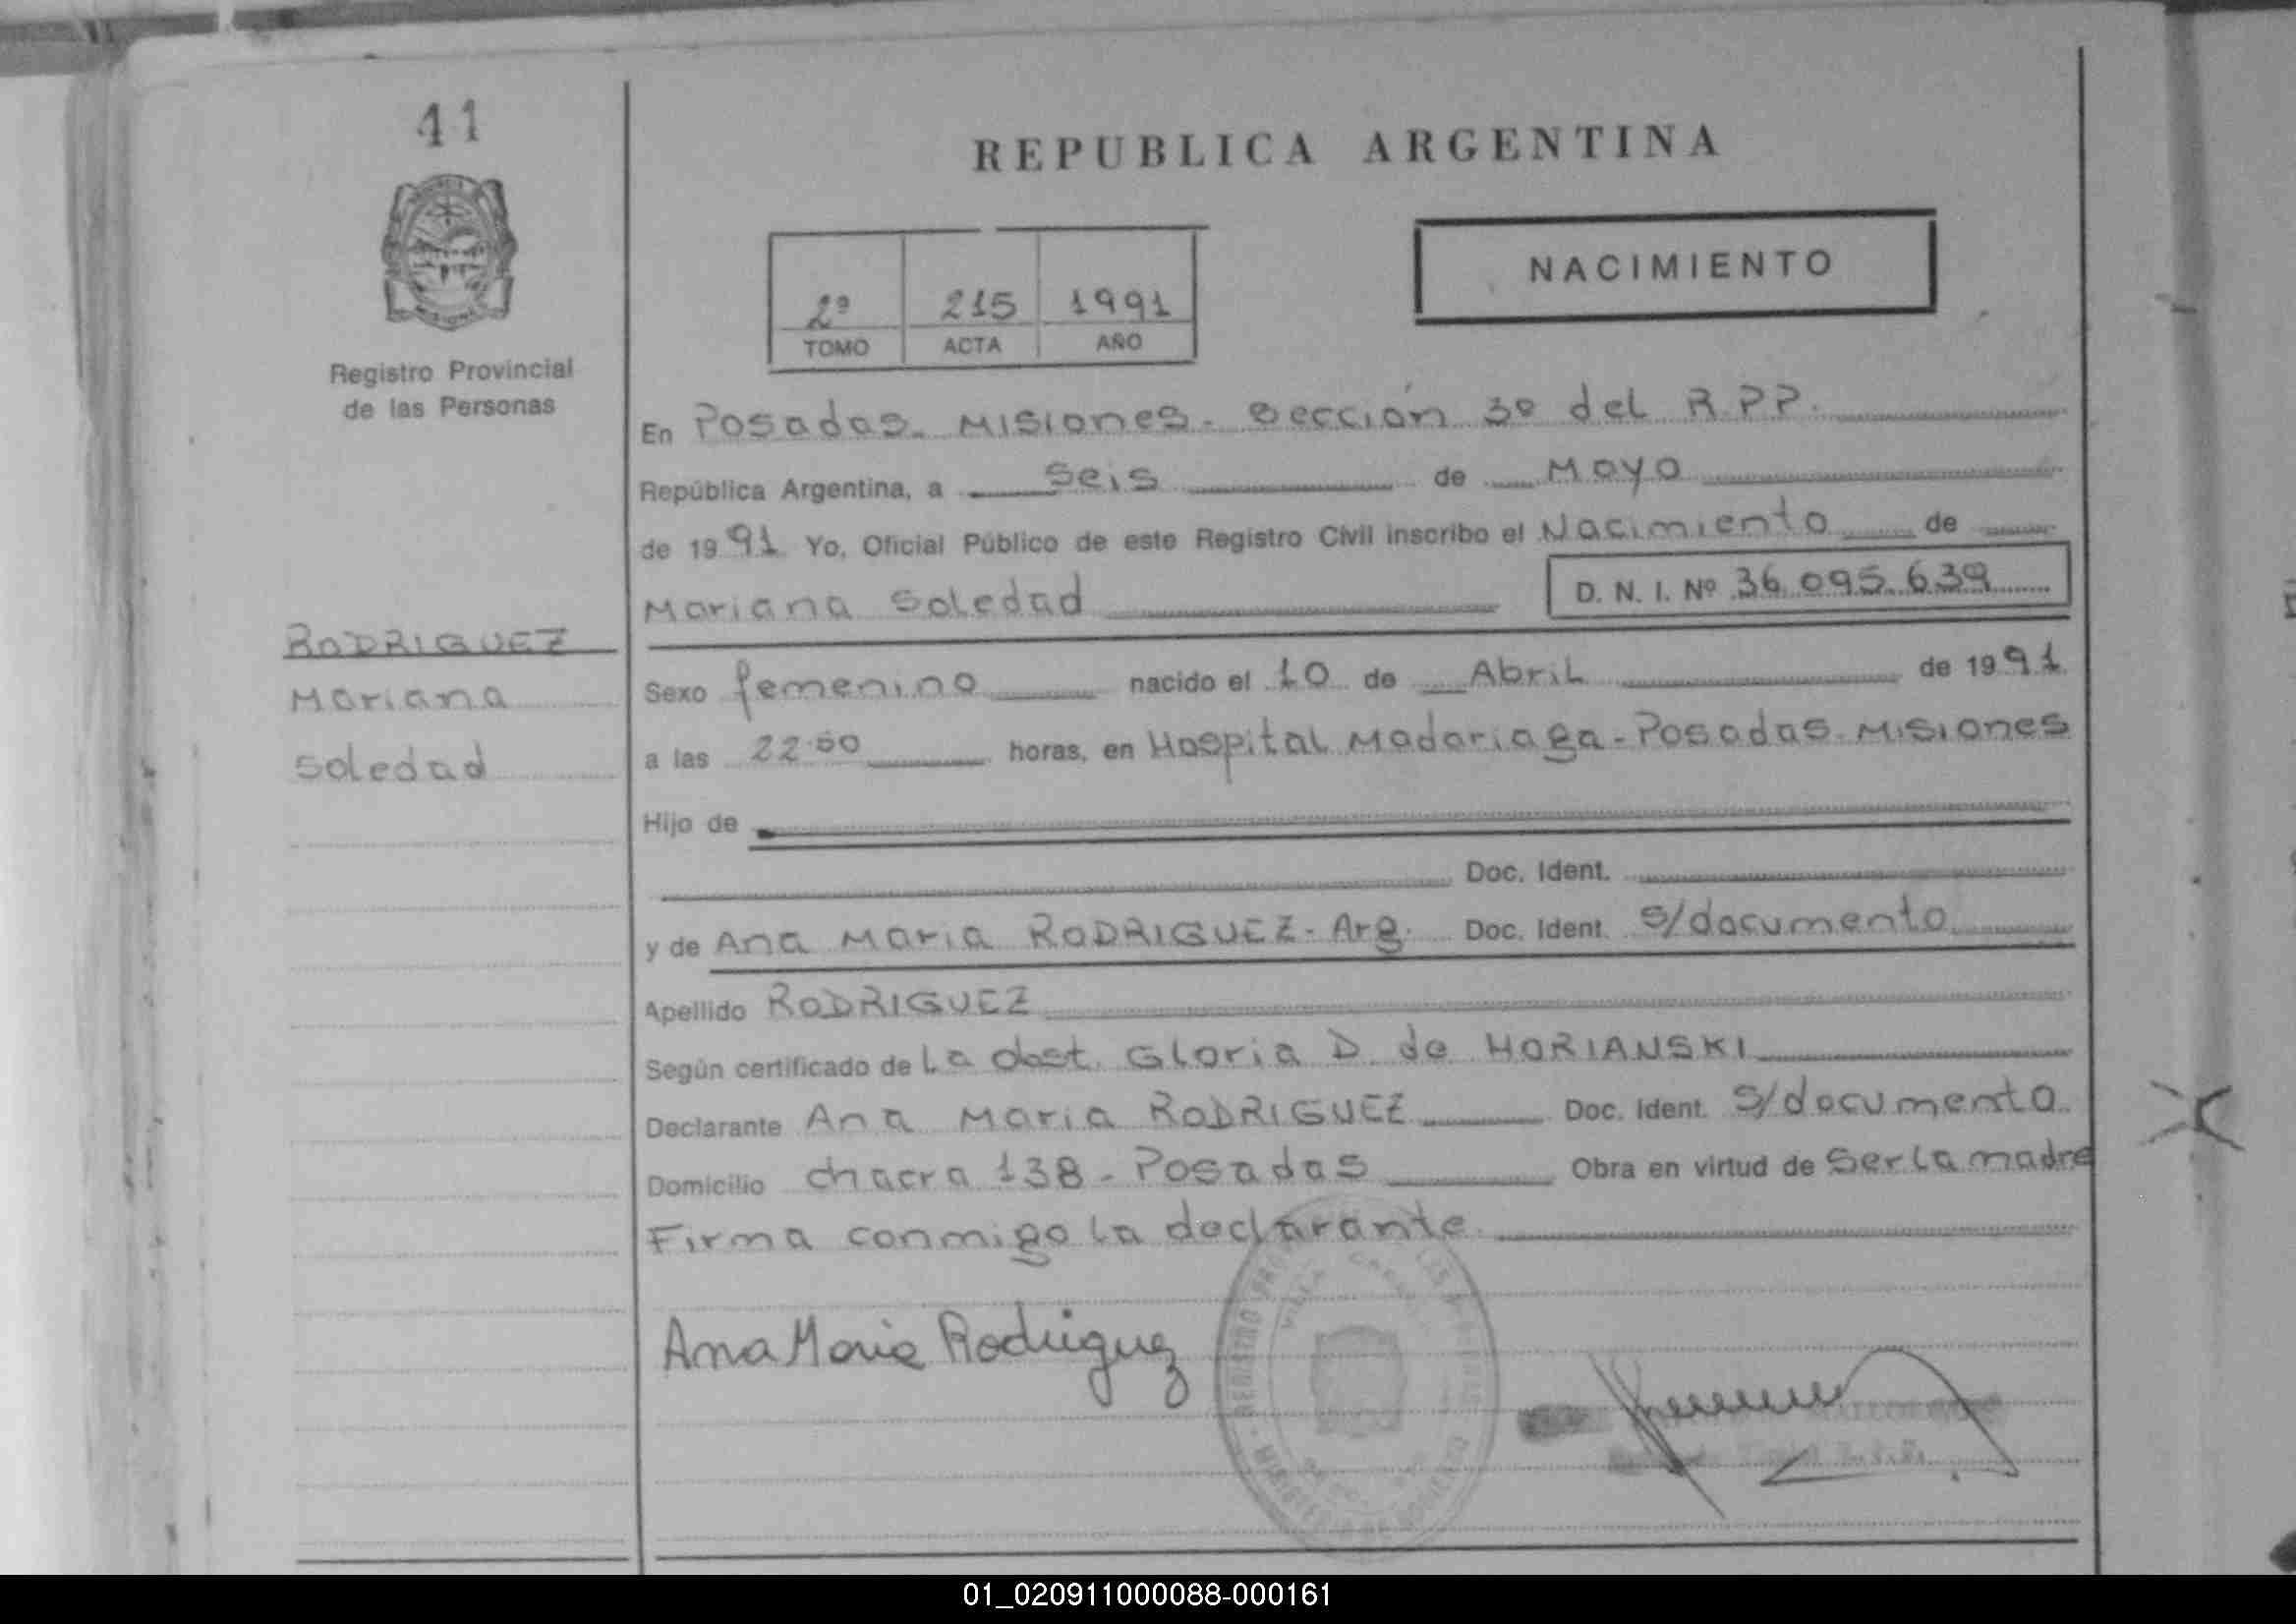 41
REPUBLICA ARGENTINA
NACIMIENTO
2º 215 1991
TOMO ACTA AÑO
Registro Provincial
de las Personas
En Posadas. Misiones. Sección 3º del R.P.P.
República Argentina, a Seis de Mayo
de 1991 Yo, Oficial Público de este Registro Civil inscribo el Nacimiento de
Mariana Soledad D. N. I. Nº 36.095.639
RODRIGUEZ
Mariana
Soledad
Sexo femenino nacido el 10 de Abril de 1991
a las horas, en Hospital Madariaga - Posadas. Misiones
Hijo de
Doc. Ident.
y de Ana Maria RODRIGUEZ - Arg. Doc. Ident. S/documento
Apellido RODRIGUEZ
Según certificado de La obst. Gloria D. de HORIANSKI
Declarante Ana Maria RODRIGUEZ Doc. Ident. S/documento
Domicilio chacra 138 - Posadas Obra en virtud de Ser la madre
Firma conmigo la declarante.
Ana Maria Rodriguez
01_020911000088-000161